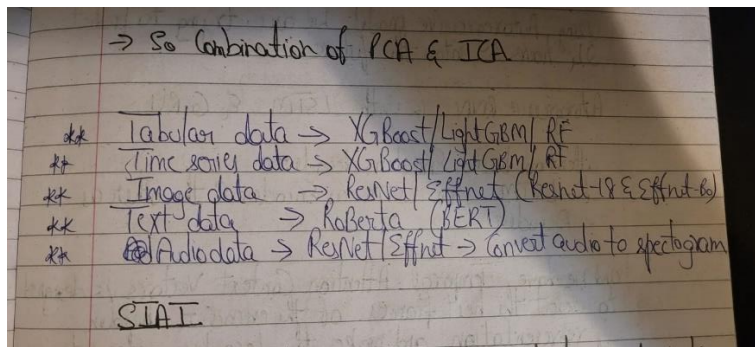 → So Combination of PCA & ICA
** Tabular data → XGBoost/LightGBM/RF
** Time series data → XGBoost/LightGBM/RF
** Image data → ResNet/Effnet (Resnet-18 & Effnet-B0)
** Text data → RoBerta (BERT)
** Audio data → ResNet/Effnet → Convert audio to spectogram
STAT